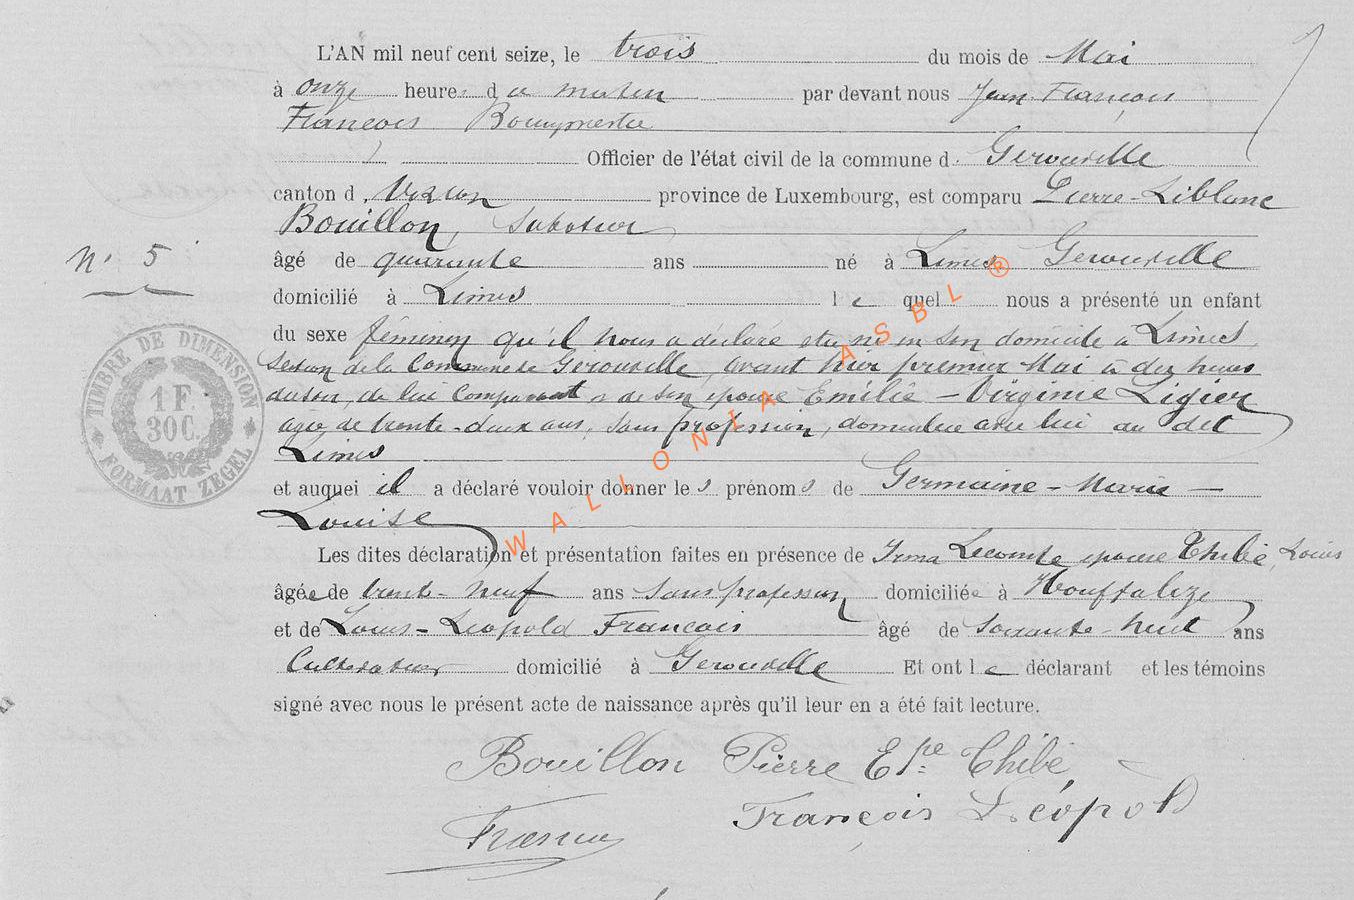 L'AN mil neuf cent seize, le trois du mois de Mai
à onze heures du matin par devant nous Jean François
François
Officier de l'état civil de la commune d. Gerouville
canton d. Virton province de Luxembourg, est comparu Pierre-Liblanc
Bouillon, Sabotier
N° 5
âgé de quarante ans né à Limes Gerouville
domicilié à Limes le quel nous a présenté un enfant
du sexe féminin qu'il nous a déclaré être né en son domicile à Limes,
section de la Commune de Gerouville, avant hier premier Mai à dix heures
du soir, de lui Comparant & de son épouse Emélie - Virginie Ligier
agée de trente-deux ans, sans profession, domiciliée avec lui au dit
Limes
et auquel il a déclaré vouloir donner les prénoms de Germaine - Marie -
Louise
Les dites déclaration et présentation faites en présence de Irma Lecomte épouse Thibé, Louis
âgée de trente-neuf ans sans profession domiciliée à Houffalize
et de Louis-Léopold François âgé de soixante-huit ans
Cultivateur domicilié à Gerouville Et ont le déclarant et les témoins
signé avec nous le présent acte de naissance après qu'il leur en a été fait lecture.
Bouillon Pierre Epe Thibé
François Léopold
TIMBRE DE DIMENSION
1 F.
30 C.
FORMAAT ZEGEL
WALLONIA ASBL ®